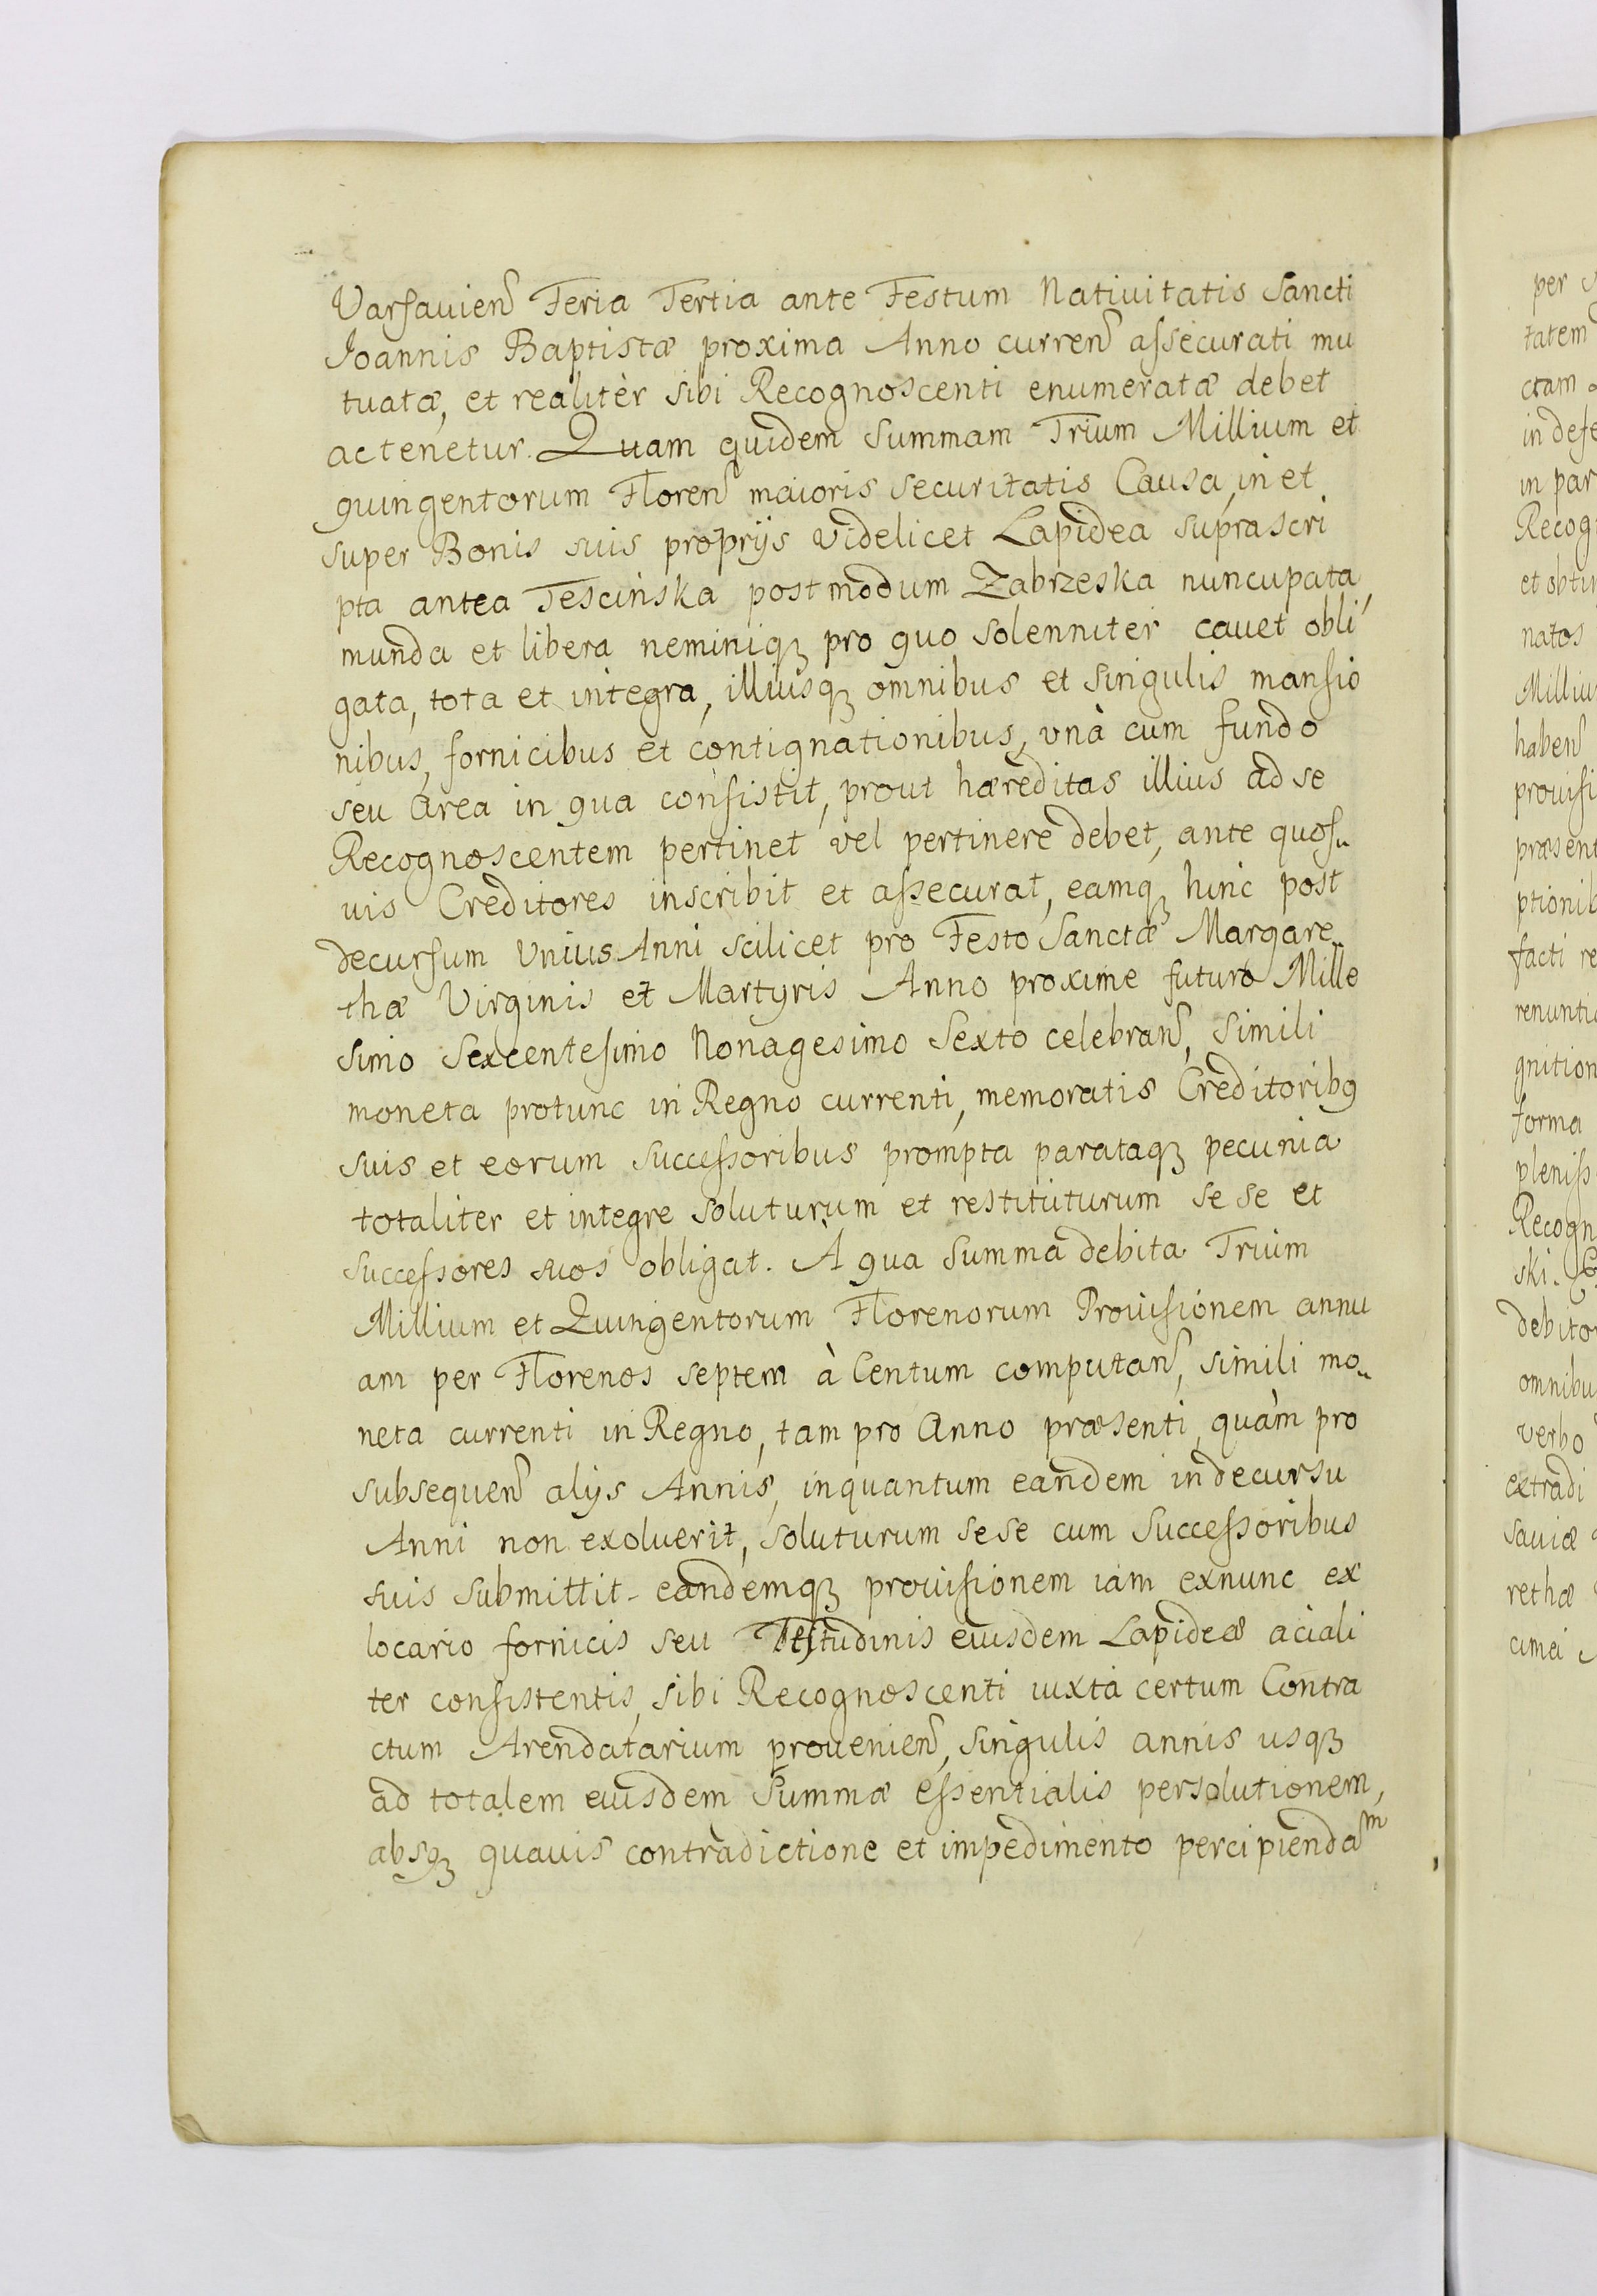 Varſauien Feria Tertia ante Festum Natiuitatis Sancti
Joannis Baptistæ proxima Anno curren aſsecurati mu
tuatæ, et realitèr sibi Recognoscenti enumeratæ debet
ac tenetur. Quam quidem summam Trium Millium et
quingentorum Floren maioris securitatis Causa, in et
super Bonis suis proprijs videlicet Lapidea suprascri
pta antea Tescinska postmodum Zabrzeska nuncupata,
munda et libera neminiqꝫ pro quo solenniter cauet obli
gata, tota et integra, illiusqꝫ omnibus et singulis manſio
nibus, fornicibus et contignationibus, vnà cum fundo
seu Area in qua conſistit, prout hæreditas illius ad se
Recognoscentem pertinet vel pertinere debet, ante quoſ„
uis Creditores inscribit et aſsecurat, eamqꝫ hinc post
decurſum Vnius Anni scilicet pro Festo Sanctæ Margare„
thæ Virginis et Martyris Anno proxime futuro Mille
simo Sexcenteſimo Nonagesimo Sexto celebran, simili
moneta protunc in Regno currenti, memoratis Creditoribꝯ
suis et eorum succeſsoribus prompta parataqꝫ pecunia
totaliter et integre soluturum et restituturum se se et
succeſsores suos obligat. A qua summa debita Trium
Millium et Quingentorum Florenorum Prouiſionem annu
am per Florenos septem à Centum computan, simili mo„
neta currenti in Regno, tam pro Anno præsenti, quàm pro
subsequen alijs Annis, inquantum eandem in decursu
Anni non exoluerit, soluturum sese cum Succeſsoribus
suis submittit - eandemqꝫ prouiſionem iam exnunc ex
locario fornicis seu Testudinis eiusdem Lapideæ aciali
ter conſistentis, sibi Recognoscenti iuxta certum Contra
ctum Arendatarium prouenien, singulis annis usqꝫ
ad totalem eiusdem Summæ eſsentialis persolutionem,
absqꝫ quauis contradictione et impedimento percipiendaᵐ
per
tatem
ctam
in defe
in par
Recog
et obti
natos
Milliu
haben
prouiſi
præsent
ptionib
facti re
renuntia
gnition
forma
pleniſs
Recogn
ski.
debito
omnibu
verbo
extradi
sauiæ
rethæ
cimei